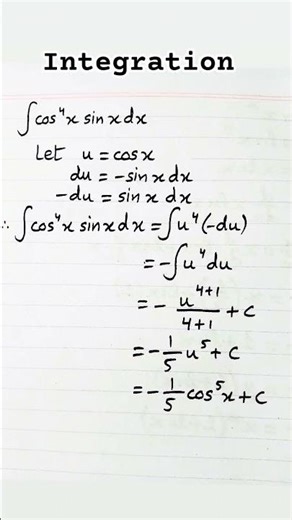 Integration
∫cos⁴x sin x dx
Let u = cos x
du = -sin x dx
-du = sin x dx
∴ ∫cos⁴x sin x dx = ∫u⁴(-du)
= -∫u⁴ du
= - u⁴⁺¹/4+1 + c
= -1/5 u⁵ + c
= -1/5 cos⁵x + c